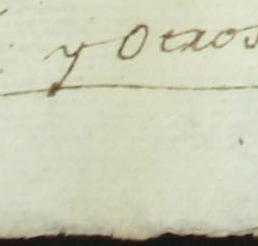 y Otros